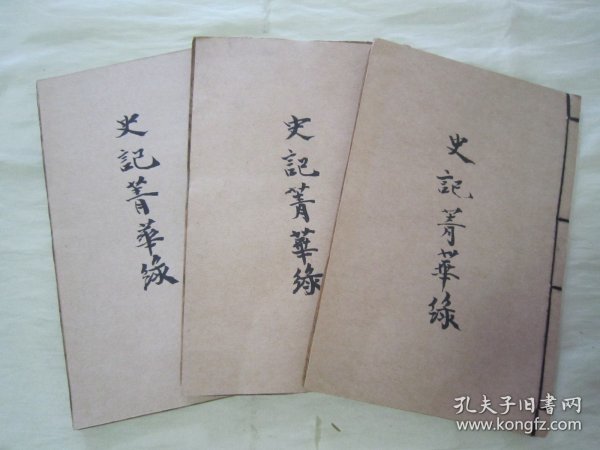 史記菁華錄
史記菁華錄
史記菁華錄
孔夫子旧書网
www.kongfz.com